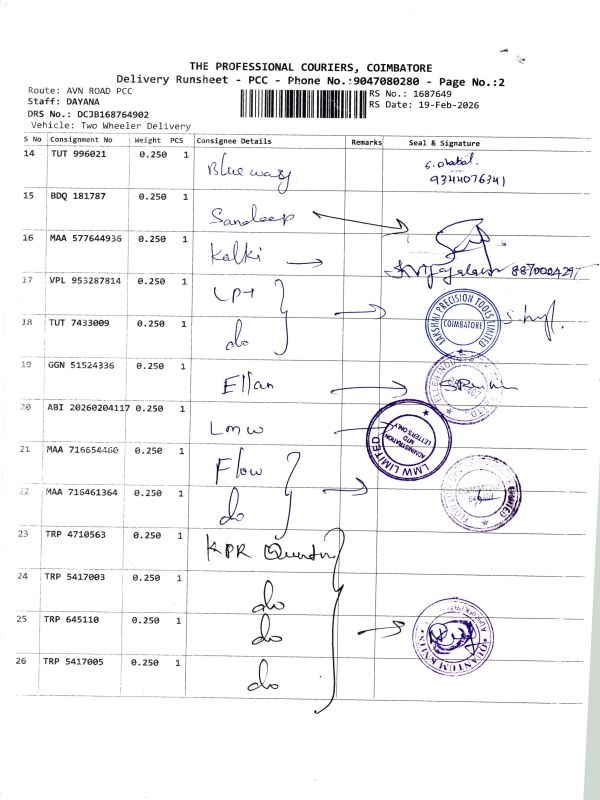 THE PROFESSIONAL COURIERS, COIMBATORE
Delivery Runsheet - PCC - Phone No.:9047080280 - Page No.:2
Route: AVN ROAD PCC
RS No.: 1687649
Staff: DAYANA
RS Date: 19-Feb-2026
DRS No.: DCJB168764902
Vehicle: Two Wheeler Delivery
S No Consignment No Weight PCS Consignee Details Remarks Seal & Signature
14 TUT 996021 0.250 1 Blue way
9344076341
15 BDQ 181787 0.250 1 Sandeep
16 MAA 577644936 0.250 1 Kalki
17 VPL 953287814 0.250 1 LPT
LAKSHMI PRECISION TOOLS LIMITED
COIMBATORE
18 TUT 7433009 0.250 1 do
19 GGN 51524336 0.250 1 Ellan
20 ABI 20260204117 0.250 1 Lmw
LMW LIMITED
ADMINISTRATION
MTD
LETTERS ONLY
21 MAA 716654460 0.250 1 Flow
22 MAA 716461364 0.250 1 do
LIMITED
23 TRP 4710563 0.250 1 KPR
24 TRP 5417003 0.250 1 do
25 TRP 645110 0.250 1 do
QUANTUM KNITS
26 TRP 5417005 0.250 1 do